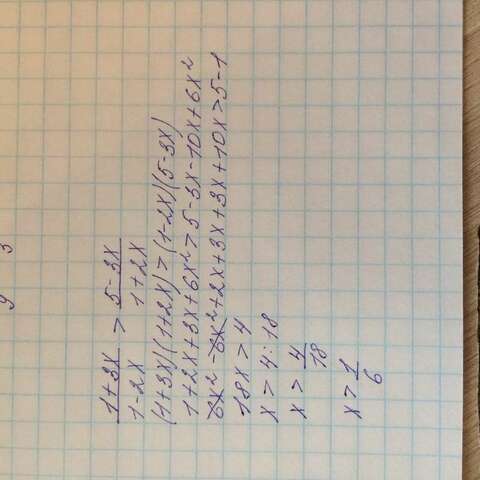 y 3
1+3x / 1-2x > 5-3x / 1+2x
(1+3x)(1+2x)>(1-2x)(5-3x)
1+2x+3x+6x²>5-3x-10x+6x²
6x²-6x²+2x+3x+3x+10x>5-1
18x>4
x > 4:18
x > 4/18
x > 1/6